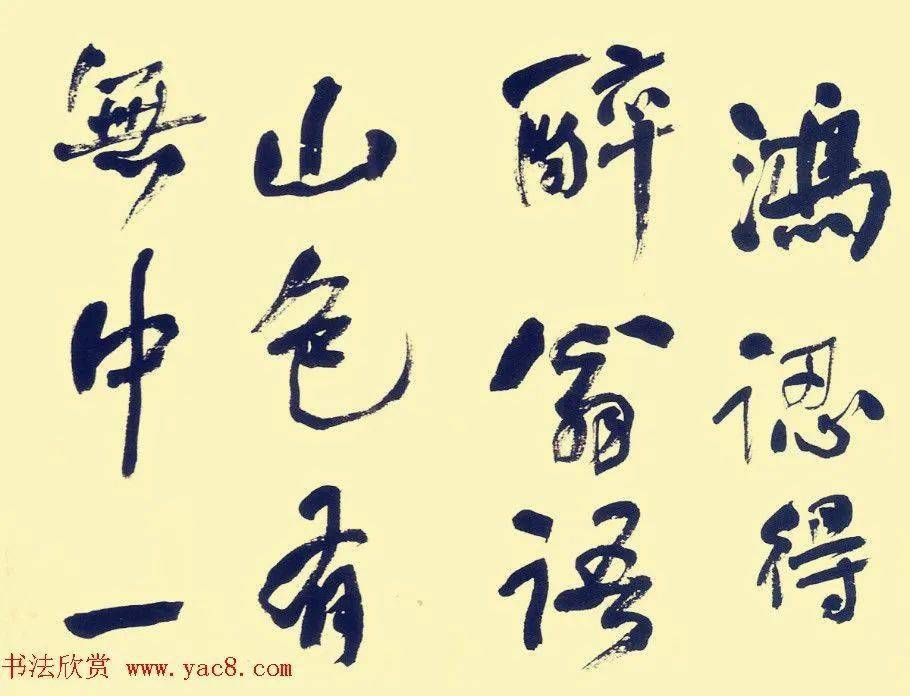 鴻認得
醉翁語
山色有
無中一
书法欣赏 www.yac8.com